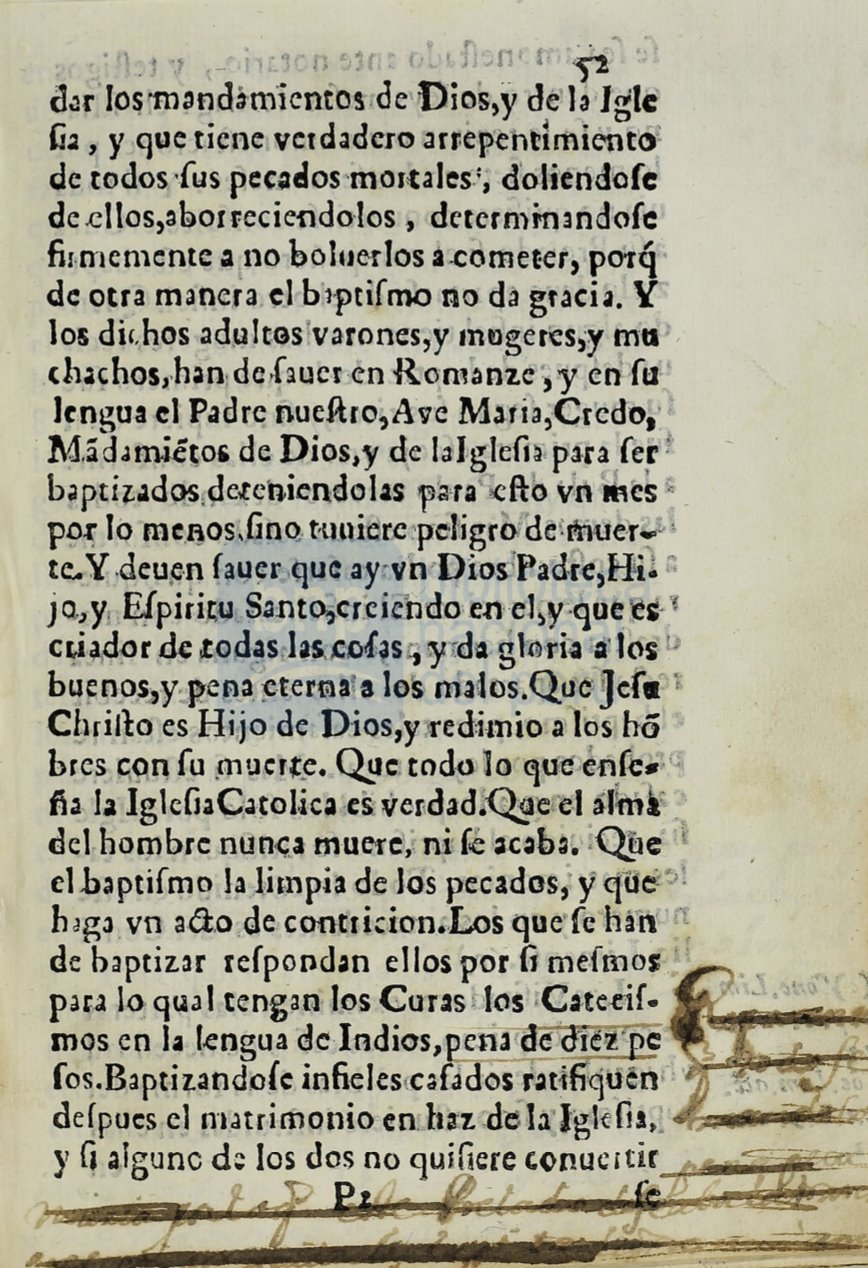 52
dar los mandamientos de Dios,y de la Igle
ſia, y que tiene verdadero arrepentimiento
de todos ſus pecados mortales, doliendoſe
de ellos,aborreciendolos, determinandoſe
firmemente a no boluerlos a cometer, porq́
de otra manera el baptiſmo no da gracia. Y
los dichos adultos varones,y mugeres,y mu
chachos, han de ſauer en Romanze, y en ſu
lengua el Padre nueſtro, Ave Maria, Credo,
Mãdamiẽtos de Dios,y de laIgleſia para ſer
baptizados deteniendolas para eſto vn mes
por lo menos, ſino tuuiere peligro de muer-
te. Y deuen ſauer que ay vn Dios Padre, Hi-
jo, y Eſpiritu Santo,creiendo en el,y que es
criador de todas las coſas, y da gloria a los
buenos,y pena eterna a los malos. Que Jeſu
Chriſto es Hijo de Dios,y redimio a los hõ
bres con ſu muerte. Que todo lo que enſe-
ña la IgleſiaCatolica es verdad. Que el alma
del hombre nunca muere, ni ſe acaba. Que
el baptiſmo la limpia de los pecados, y que
haga vn acto de contricion. Los que ſe han
de baptizar reſpondan ellos por ſi meſmos
para lo qual tengan los Curas los Cateciſ-
mos en la lengua de Indios, pena de diez pe
ſos. Baptizandoſe infieles caſados ratifiquen
deſpues el matrimonio en haz de la Igleſia,
y ſi alguno de los dos no quiſiere conuertir
P2 ſe